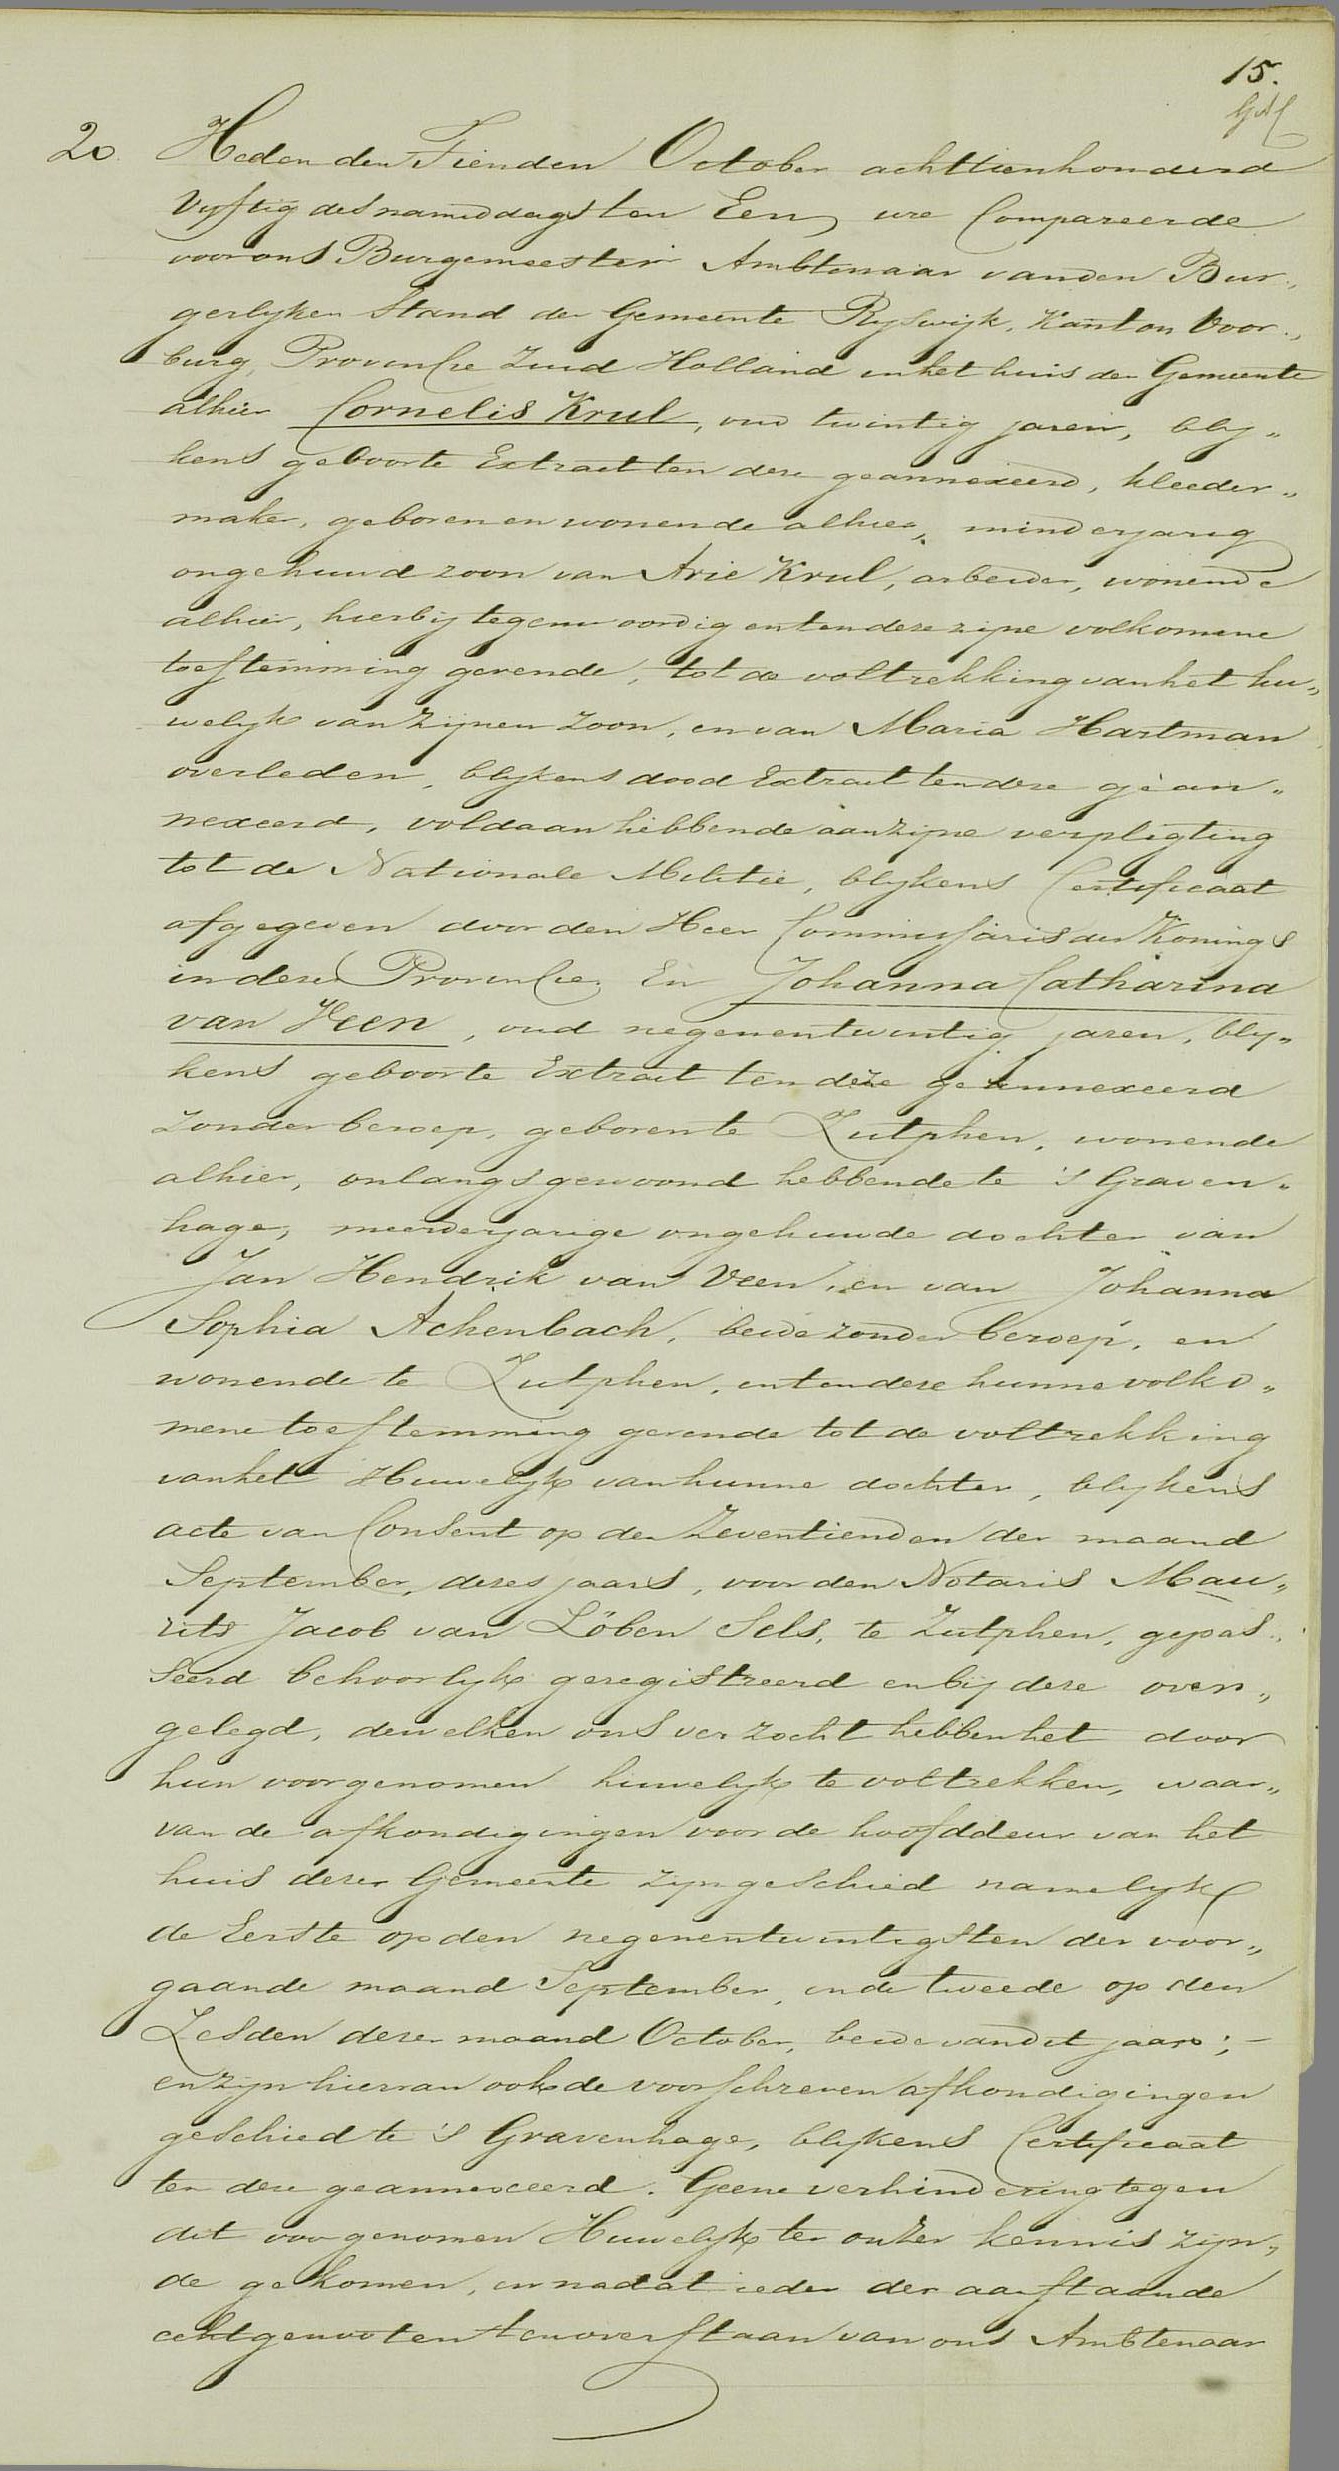 15.
20. Heden den Tienden October achttienhonderd
Vyftig des namiddags ten Een ure Compareerde
voor ons Burgemeester Ambtenaar van den Bur„
gerlyken Stand der Gemeente Ryswijk, Kanton Voor„
burg, Provincie Zuid Holland in het huis der Gemeente
alhier Cornelis Krul, oud twintig jaren, bly„
kens geboorte Extract ten deze geannexeerd, kleeder„
maker, geboren en wonende alhier, minderjarig
ongehuwd zoon van Arie Krul, arbeider, wonende
alhier, hierbij tegenwoordig en ten deze zijne volkomene
toestemming gevende, tot de voltrekking van het hu„
welyk van zijnen zoon, en van Maria Hartman
overleden, blykens dood Extract ten deze gean„
nexeerd, voldaan hebbende aan zijne verpligting
tot de Nationale Militie, blykens Certificaat
afgegeven door den Heer Commissaris des Konings
in deze Provincie. En Johanna Catharina
van Veen, oud negenentwintig jaren, bly„
kens geboorte Extract ten deze geannexeerd
zonder beroep, geboren te Zutphen, wonende
alhier, onlangs gewoond hebbende te 's Graven„
hage, meerderjarige ongehuwde dochter van
Jan Hendrik van Veen, en van Johanna
Sophia Achenbach, beide zonder beroep, en
wonende te Zutphen, en ten deze hunne volko„
mene toestemming gevende tot de voltrekking
van het Huwelyk van hunne dochter, blykens
acte van Consent op den Zeventienden der maand
September, dezes jaars, voor den Notaris Mau„
rits Jacob van Löben Sels, te Zutphen, gepas„
seerd behoorlyk geregistreerd en bij deze over„
gelegd, dewelken ons verzocht hebben het door
hun voorgenomen huwelyk te voltrekken, waar„
van de afkondigingen voor de hoofddeur van het
huis dezer Gemeente zijn geschied namelyk
de Eerste op den negenentwintigsten der voor„
gaande maand September, en de tweede op den
Zesden dezer maand October, beide van dit jaar;
en zijn hiervan ook de voorschreven afkondigingen
geschied te 's Gravenhage, blykens Certificaat
ten deze geannexeerd. Geene verhindering tegen
dit voorgenomen Huwelyk ter onzer kennis zijn„
de gekomen, en nadat ieder der aanstaande
echtgenooten ten overstaan van ons Ambtenaar